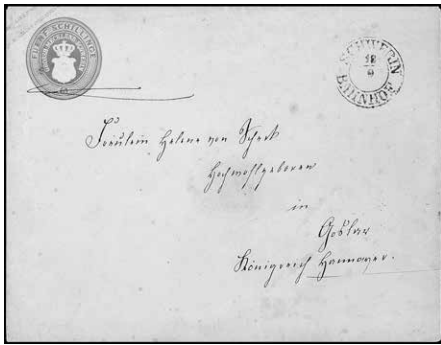 FUENF SCHILLINGE
SCHWERIN
18
9
BAHNHOF
Fräulein Helene von Scheck
Hochwohlgeboren
in
Goslar
Königreich Hannover.